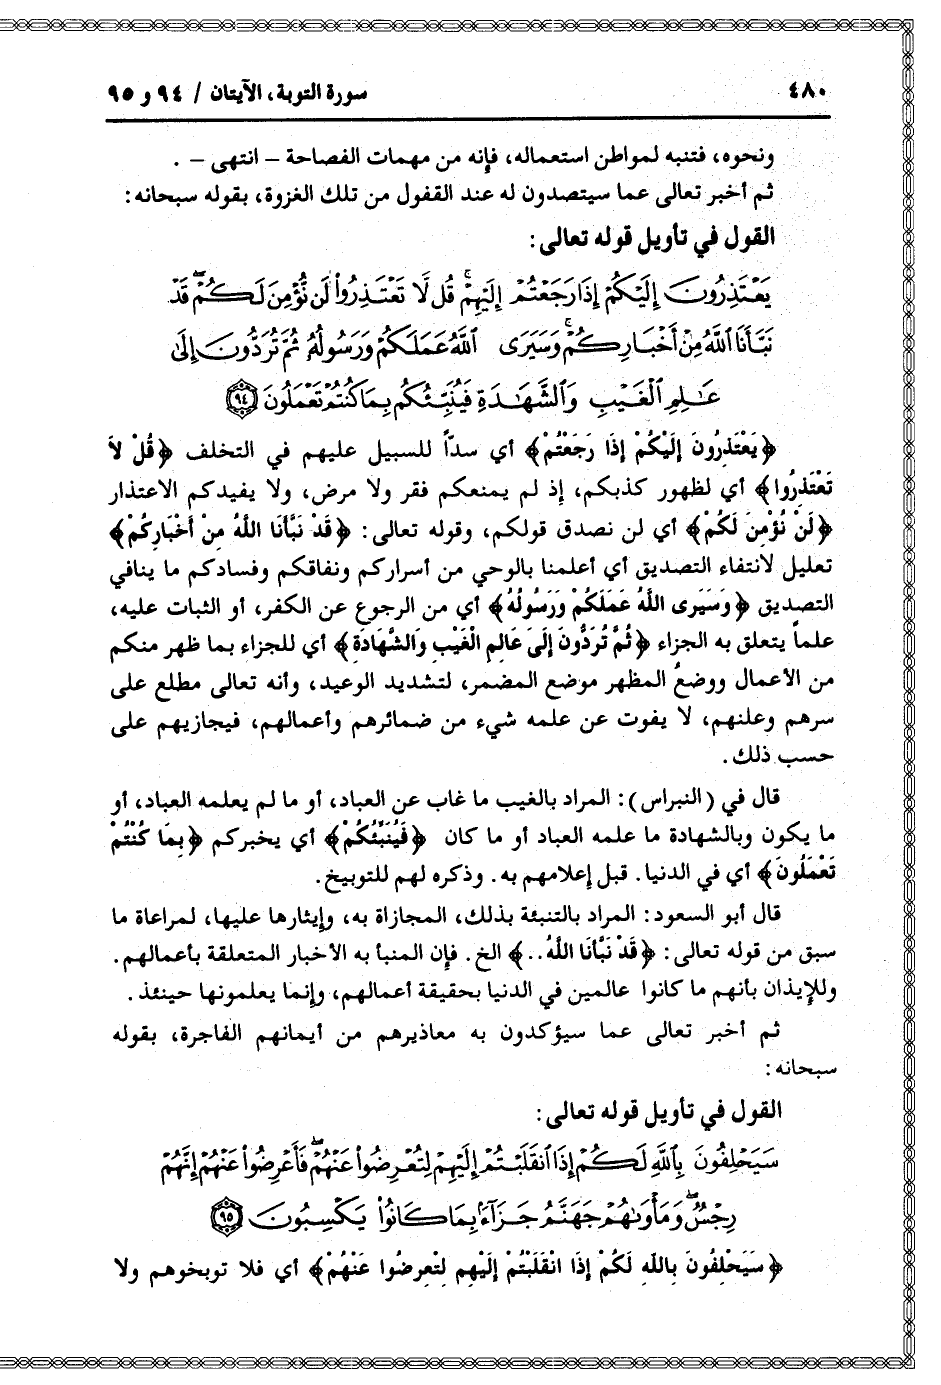 ٤٨٠
سورة التوبة، الآيتان / ٩٤ و ٩٥
ونحوه، فتنبه لمواطن استعماله، فإنه من مهمات الفصاحة – انتهى – .
ثم أخبر تعالى عما سيتصدون له عند القفول من تلك الغزوة، بقوله سبحانه:
القول في تأويل قوله تعالى:
يَعْتَذِرُونَ إِلَيْكُمْ إِذَا رَجَعْتُمْ إِلَيْهِمْ ۚ قُل لَّا تَعْتَذِرُوا۟ لَن نُّؤْمِنَ لَكُمْ ۖ قَدْ
نَبَّأَنَا ٱللَّهُ مِنْ أَخْبَارِكُمْ ۚ وَسَيَرَى ٱللَّهُ عَمَلَكُمْ وَرَسُولُهُ ثُمَّ تُرَدُّونَ إِلَىٰ
عَـٰلِمِ ٱلْغَيْبِ وَٱلشَّهَـٰدَةِ فَيُنَبِّئُكُم بِمَا كُنتُمْ تَعْمَلُونَ ٩٤
﴿يَعْتَذِرُونَ إِلَيْكُمْ إِذَا رَجَعْتُمْ﴾ أي سدّاً للسبيل عليهم في التخلف ﴿قُلْ لاَ
تَعْتَذِرُوا﴾ أي لظهور كذبكم، إذ لم يمنعكم فقر ولا مرض، ولا يفيدكم الاعتذار
﴿لَنْ نُؤْمِنَ لَكُمْ﴾ أي لن نصدق قولكم، وقوله تعالى: ﴿قَدْ نَبَّأنَا اللهُ مِنْ أَخْبَارِكُمْ﴾
تعليل لانتفاء التصديق أي أعلمنا بالوحي من أسراركم ونفاقكم وفسادكم ما ينافي
التصديق ﴿وَسَيَرى اللهُ عَمَلَكُمْ وَرَسُولُهُ﴾ أي من الرجوع عن الكفر، أو الثبات عليه،
علماً يتعلق به الجزاء ﴿ثُمَّ تُرَدُّونَ إِلَى عَالِمِ الْغَيْبِ وَالشَّهَادَةِ﴾ أي للجزاء بما ظهر منكم
من الأعمال ووضعُ المظهر موضع المضمر، لتشديد الوعيد، وأنه تعالى مطلع على
سرهم وعلنهم، لا يفوت عن علمه شيء من ضمائرهم وأعمالهم، فيجازيهم على
حسب ذلك.
قال في (النبراس): المراد بالغيب ما غاب عن العباد، أو ما لم يعلمه العباد، أو
ما يكون وبالشهادة ما علمه العباد أو ما كان ﴿فَيُنَبِّئُكُمْ﴾ أي يخبركم ﴿بِمَا كُنْتُمْ
تَعْمَلُونَ﴾ أي في الدنيا. قبل إعلامهم به. وذكره لهم للتوبيخ.
قال أبو السعود: المراد بالتنبئة بذلك، المجازاة به، وإيثارها عليها، لمراعاة ما
سبق من قوله تعالى: ﴿قَدْ نَبَّأنَا اللهُ..﴾ الخ. فإن المنبأ به الأخبار المتعلقة بأعمالهم.
وللإيذان بأنهم ما كانوا عالمين في الدنيا بحقيقة أعمالهم، وإنما يعلمونها حينئذ.
ثم أخبر تعالى عما سيؤكدون به معاذيرهم من أيمانهم الفاجرة، بقوله
سبحانه:
القول في تأويل قوله تعالى:
سَيَحْلِفُونَ بِٱللَّهِ لَكُمْ إِذَا ٱنقَلَبْتُمْ إِلَيْهِمْ لِتُعْرِضُوا۟ عَنْهُمْ ۖ فَأَعْرِضُوا۟ عَنْهُمْ إِنَّهُمْ
رِجْسٌ ۖ وَمَأْوَىٰهُمْ جَهَنَّمُ جَزَآءًۢ بِمَا كَانُوا۟ يَكْسِبُونَ ٩٥
﴿سَيَحْلِفُونَ بِاللهِ لَكُمْ إِذَا انْقَلَبْتُمْ إِلَيْهِم لِتُعْرِضُوا عَنْهُمْ﴾ أي فلا توبخوهم ولا